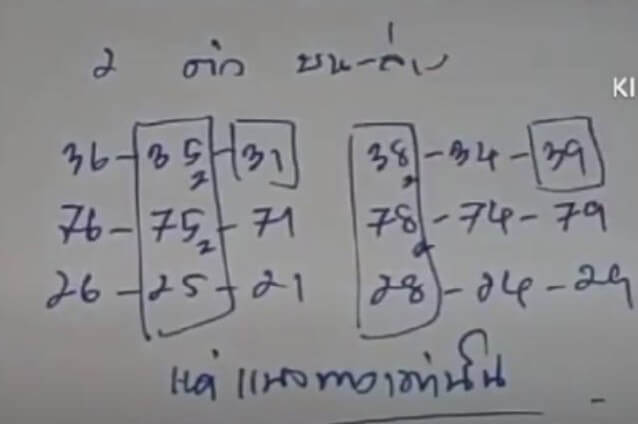 2 ตัว บน-ล่าง
KI
36-35-31 38-34-39
2 2
76-75-71 78-74-79
2 2
26-25-21 28-24-29
แค่แนวทางเท่านั้น